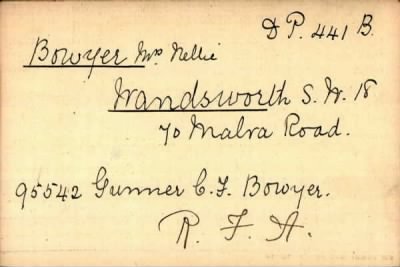 D P. 441 B.
Bowyer Mrs Nellie
Wandsworth S. W. 18
70 Malva Road.
95542 Gunner C. F. Bowyer.
R. F. A.